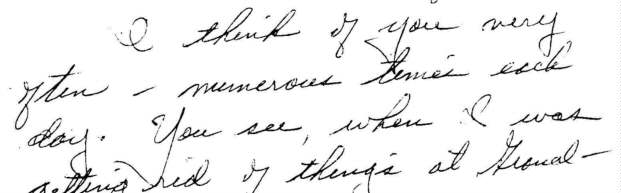 I think of you very
often - numerous times each
day. You see, when I was
getting rid of things at Grand-